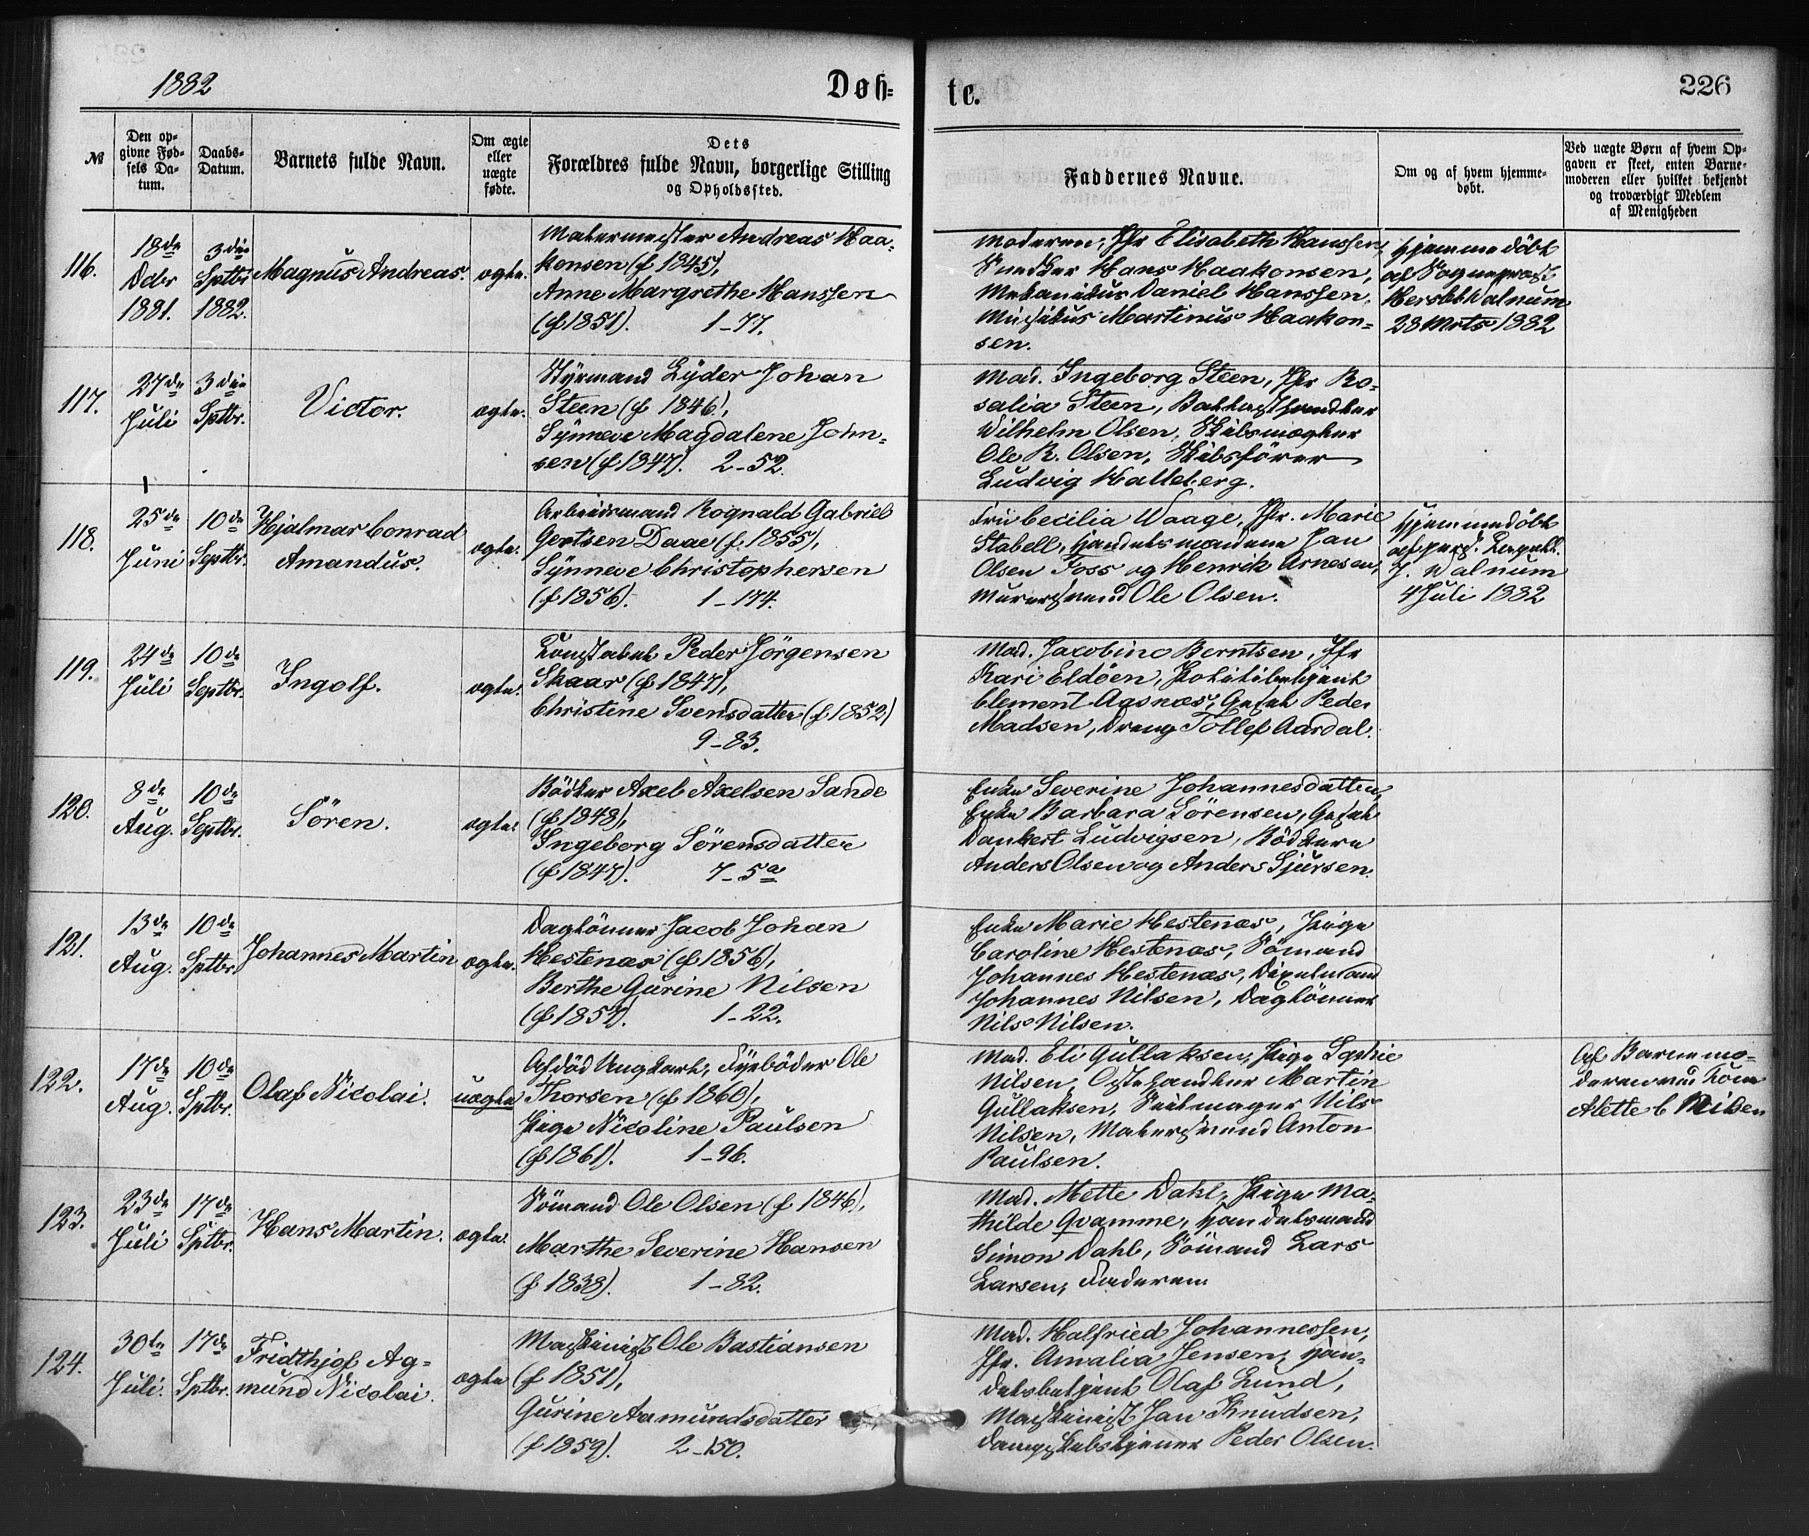 1882
Døb-
te.
226
№
Den op-
givne Fød-
sels Da-
tum.
Daabs-
Datum.
Barnets fulde Navn.
Om ægte
eller
uægte
fødte.
Dets
Forældres fulde Navn, borgerlige Stilling
og Opholdssted.
Faddernes Navne.
Om og af hvem hjemme-
døbt.
Ved uægte Børn af hvem Op-
gaven er skeet, enten Barne-
moderen eller hvilket bekjendt
og troværdigt Medlem
af Menigheden
116.
18de
Dcbr
1881.
3die
Sptbr
1882.
Magnus Andreas.
ægte.
Malermester Andreas Haa-
konsen (f 1845),
Anne Margrethe Hanssen
(f 1851). 1-77.
Moderen, Jfr Elisabeth Hanssen,
Snedker Hans Haakonsen,
Mekanikus Daniel Hanssen,
Musikus Martinus Haakon-
sen.
Hjemmedöbt
af Sognepræst
Hersleb Walnum
28 Mrts 1882
117.
27de
Juli
3die
Sptbr.
Victor.
ægte.
Styrmand Lyder Johan
Steen (f 1846),
Synneve Magdalene John-
sen (f 1847). 2-52.
Mad. Ingeborg Steen, Jfr Ro-
salia Steen, Ballasthandler
Wilhelm Olsen, Skibsmægler
Ole R. Olsen, Skibsförer
Ludvig Halleberg.
118.
25de
Juni
10de
Septbr.
Hjalmar Conrad
Amandus.
ægte.
Arbeidsmand Rognald Gabriel
Gertsen Daae (f. 1855),
Synneve Christophersen
(f 1856). 1-174.
Fru Cecilia Waage, Jfr. Marie
Stabell, Handelsmændene Jan
Olsen Foss og Henrik Arnesen,
Murersvend Ole Olsen.
Hjemmedöbt
af pers. Kapell.
J. Walnum
4 Juli 1882
119.
24de
Juli
10de
Septbr.
Ingolf.
ægte.
Konstabel Peder Jörgensen
Skaar (f 1847),
Christine Svensdatter (f 1852)
9-83.
Mad. Jacobine Berntsen, Jfr
Kari Eldöen, Politibetjent
Clement Aasnæs, Gesel Peder
Madsen, Dreng Tollef Aardal.
120.
8de
Aug.
10de
Septbr.
Sören.
ægte.
Bödker Axel Axelsen Sande
(f 1848),
Ingeborg Sörensdatter
(f 1847). 7-5a
Enke Severine Johannesdatter,
Enke Barbara Sörensen, Gesel
Dankert Ludvigsen, Bödkere
Anders Olsen og Anders Sjursen.
121.
13de
Aug.
10de
Sptbr.
Johannes Martin
ægte.
Daglönner Jacob Johan
Hestenæs (f 1856),
Berthe Gurine Nilsen
(f 1857). 1-22.
Enke Marie Hestenæs, Pige
Caroline Hestenæs, Sömand
Johannes Hestenæs,
Johannes Nilsen, Daglönner
Nils Nilsen.
122.
17de
Aug.
10de
Sptbr.
Olaf Nicolai.
uægte
Afdöd Ungkarl, Fyrböder Ole
Thorsen (f 1860),
Pige Nicoline Paulsen
(f 1861). 1-96.
Mad. Eli Gullaksen, Pige Sophie
Nilsen, Ostehandler Martin
Gullaksen, Seilmager Nils
Nilsen, Malersvend Anton
Paulsen.
Af Barnemo-
deren
Alette C Nilsen
123.
23de
Juli
17de
Sptbr.
Hans Martin.
ægte.
Sömand Ole Olsen (f 1846),
Marthe Severine Hansen
(f 1838). 1-82.
Mad. Mette Dahl, Pige Ma-
thilde Qvamme, Handelsmand
Simon Dahl, Sömand Lars
Larsen, Faderen.
124.
30te
Juli.
17de
Sptbr.
Fridthjof Ag-
mund Nicolai.
ægte
Maskinist Ole Bastiansen
(f 1851),
Gurine Aamundsdatter
(f 1859). 2-150.
Mad. Halfried Johannessen,
Jfr. Amalia Jensen, Han-
delsbetjent Olaf Lund,
Maskinist Jan Knudsen,
Peder Olsen.